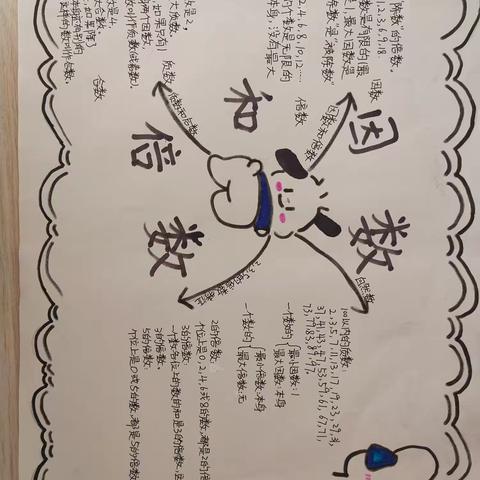 因数
和
倍数
因数
1,2,3,6,9,18.
数是有限的(最
1,最大因数是
倍数
2,4,6,8,10,12……
个数是无限的
本身,没有最大
质数
数是2,
合数
数是4.
因数和倍数
质数和合数
自然数
100以内的质数:
2,3,5,7,11,13,17,19,23,29,31,
37,41,43,47,53,59,61,67,71,
73,79,83,89,97.
一个数的
最小因数:1
最大因数:本身
一个数的
最小倍数:本身
最大倍数:无
2的倍数:
个位上是0,2,4,6或8的数,都是2的倍
3的倍数:
一个数各位上的数的和是3的倍数,
5的倍数:
个位上是0或5的数,都是5的倍数